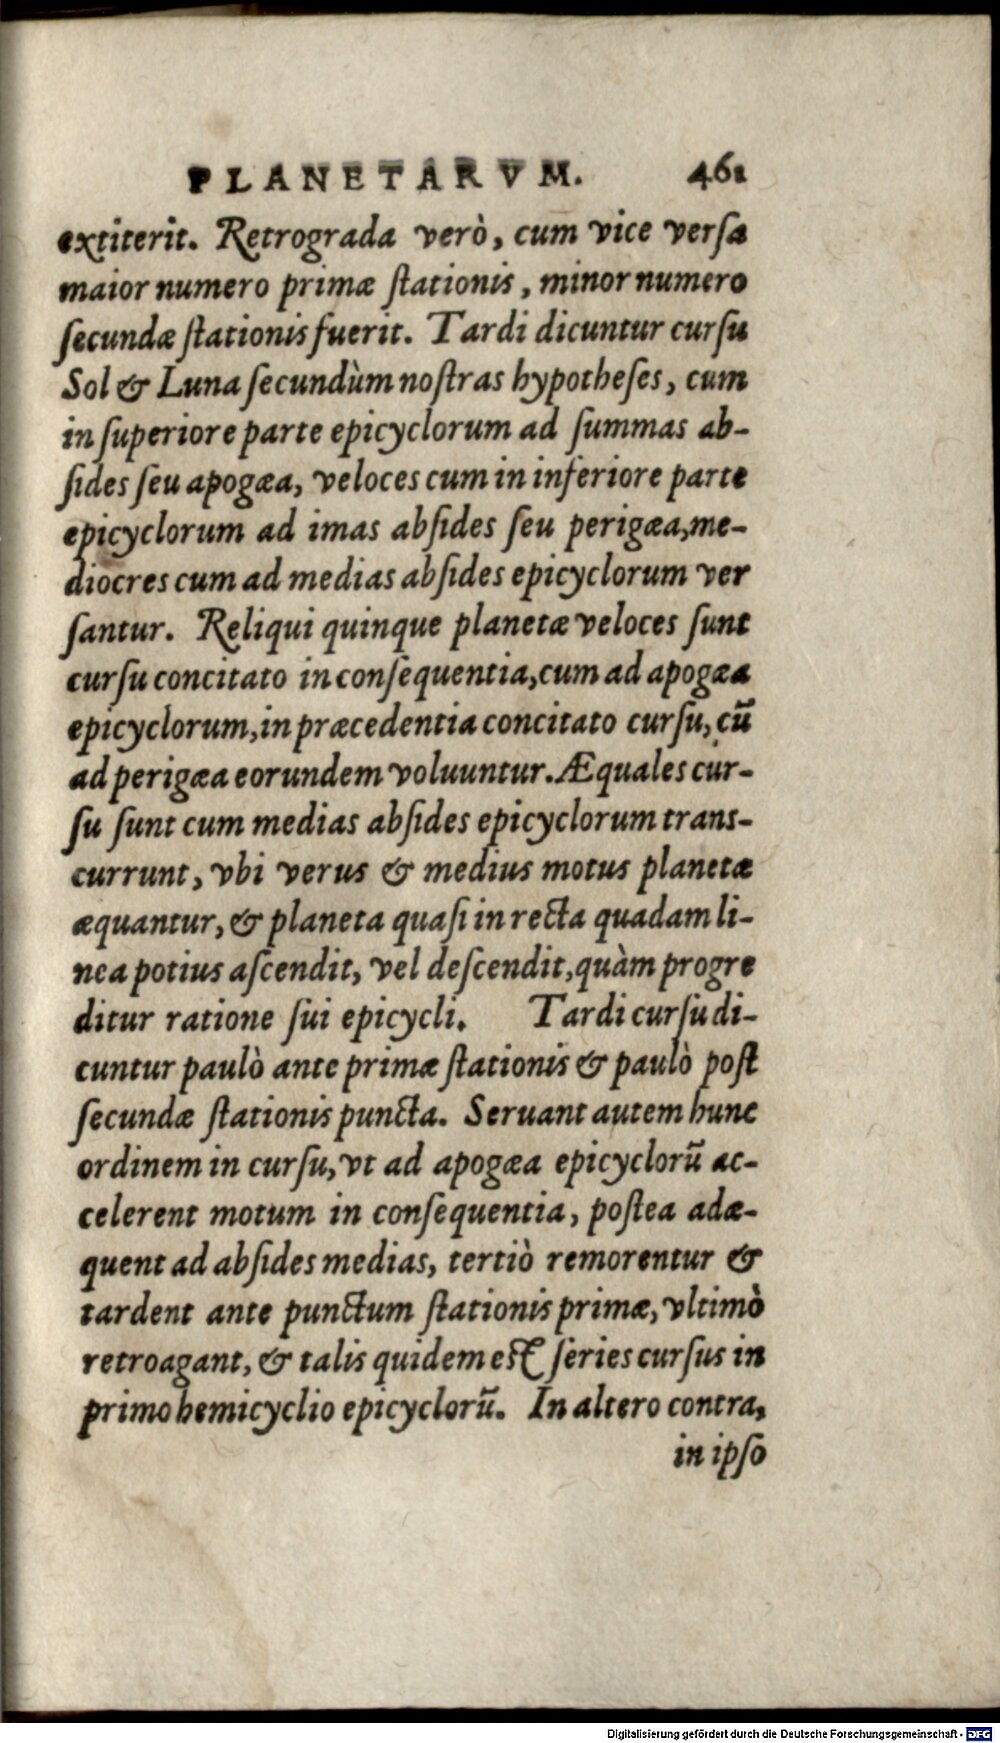 PLANETARVM. 461
extiterit. Retrograda verò, cum vice versa
maior numero primæ stationis, minor numero
secundæ stationis fuerit. Tardi dicuntur cursu
Sol & Luna secundùm nostras hypotheses, cum
in superiore parte epicyclorum ad summas ab-
sides seu apogæa, veloces cum in inferiore parte
epicyclorum ad imas absides seu perigæa, me-
diocres cum ad medias absides epicyclorum ver
santur. Reliqui quinque planetæ veloces sunt
cursu concitato in consequentia, cum ad apogæa
epicyclorum, in præcedentia concitato cursu, cū
ad perigæa eorundem voluuntur. Æquales cur-
su sunt cum medias absides epicyclorum trans-
currunt, vbi verus & medius motus planetæ
æquantur, & planeta quasi in recta quadam li-
nea potius ascendit, vel descendit, quàm progre
ditur ratione sui epicycli. Tardi cursu di-
cuntur paulò ante primæ stationis & paulò post
secundæ stationis puncta. Seruant autem hunc
ordinem in cursu, vt ad apogæa epicyclorū ac-
celerent motum in consequentia, postea adæ-
quent ad absides medias, tertiò remorentur &
tardent ante punctum stationis primæ, vltimò
retroagant, & talis quidem est series cursus in
primo hemicyclio epicyclorū. In altero contra,
in ipso
Digitalisierung gefördert durch die Deutsche Forschungsgemeinschaft - DFG